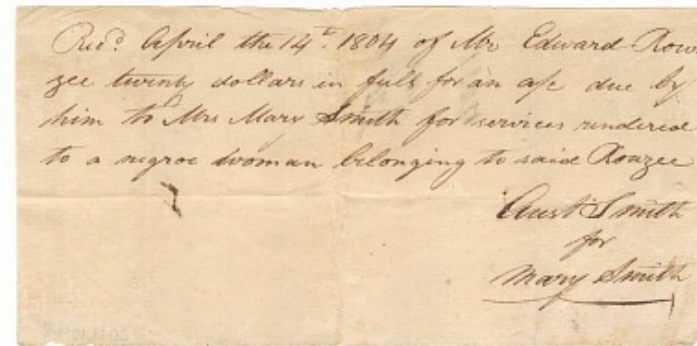 Recd. April the 14th. 1804 of Mr Edward Row
zee twenty dollars in full for an a/c due by
him to Mrs Mary Smith for services rendered
to a negroe woman belonging to said Rowzee
Aust Smith
for
Mary Smith